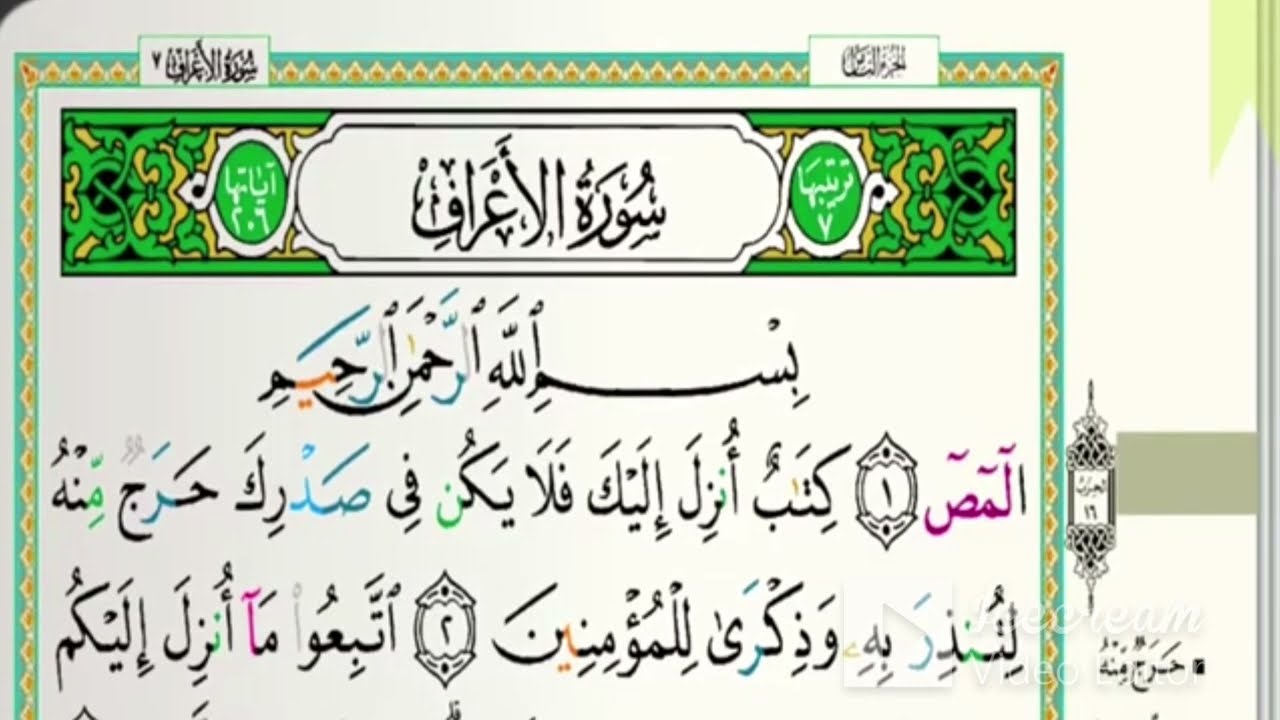 الجزء الثامن
سُورَةُ الأَعْرَافِ ٧
ترتيبها
٧
سُورَةُ الأَعْرَافِ
آياتها
٢٠٦
بِسْمِ ٱللَّهِ ٱلرَّحْمَٰنِ ٱلرَّحِيمِ
الٓمٓصٓ ١ كِتَٰبٌ أُنزِلَ إِلَيْكَ فَلَا يَكُن فِى صَدْرِكَ حَرَجٌ مِّنْهُ
لِتُنذِرَ بِهِۦ وَذِكْرَىٰ لِلْمُؤْمِنِينَ ٢ ٱتَّبِعُوا۟ مَآ أُنزِلَ إِلَيْكُم
الحزب
١٦
حَرَجٌ مِّنْهُ
Icecream
Video Editor